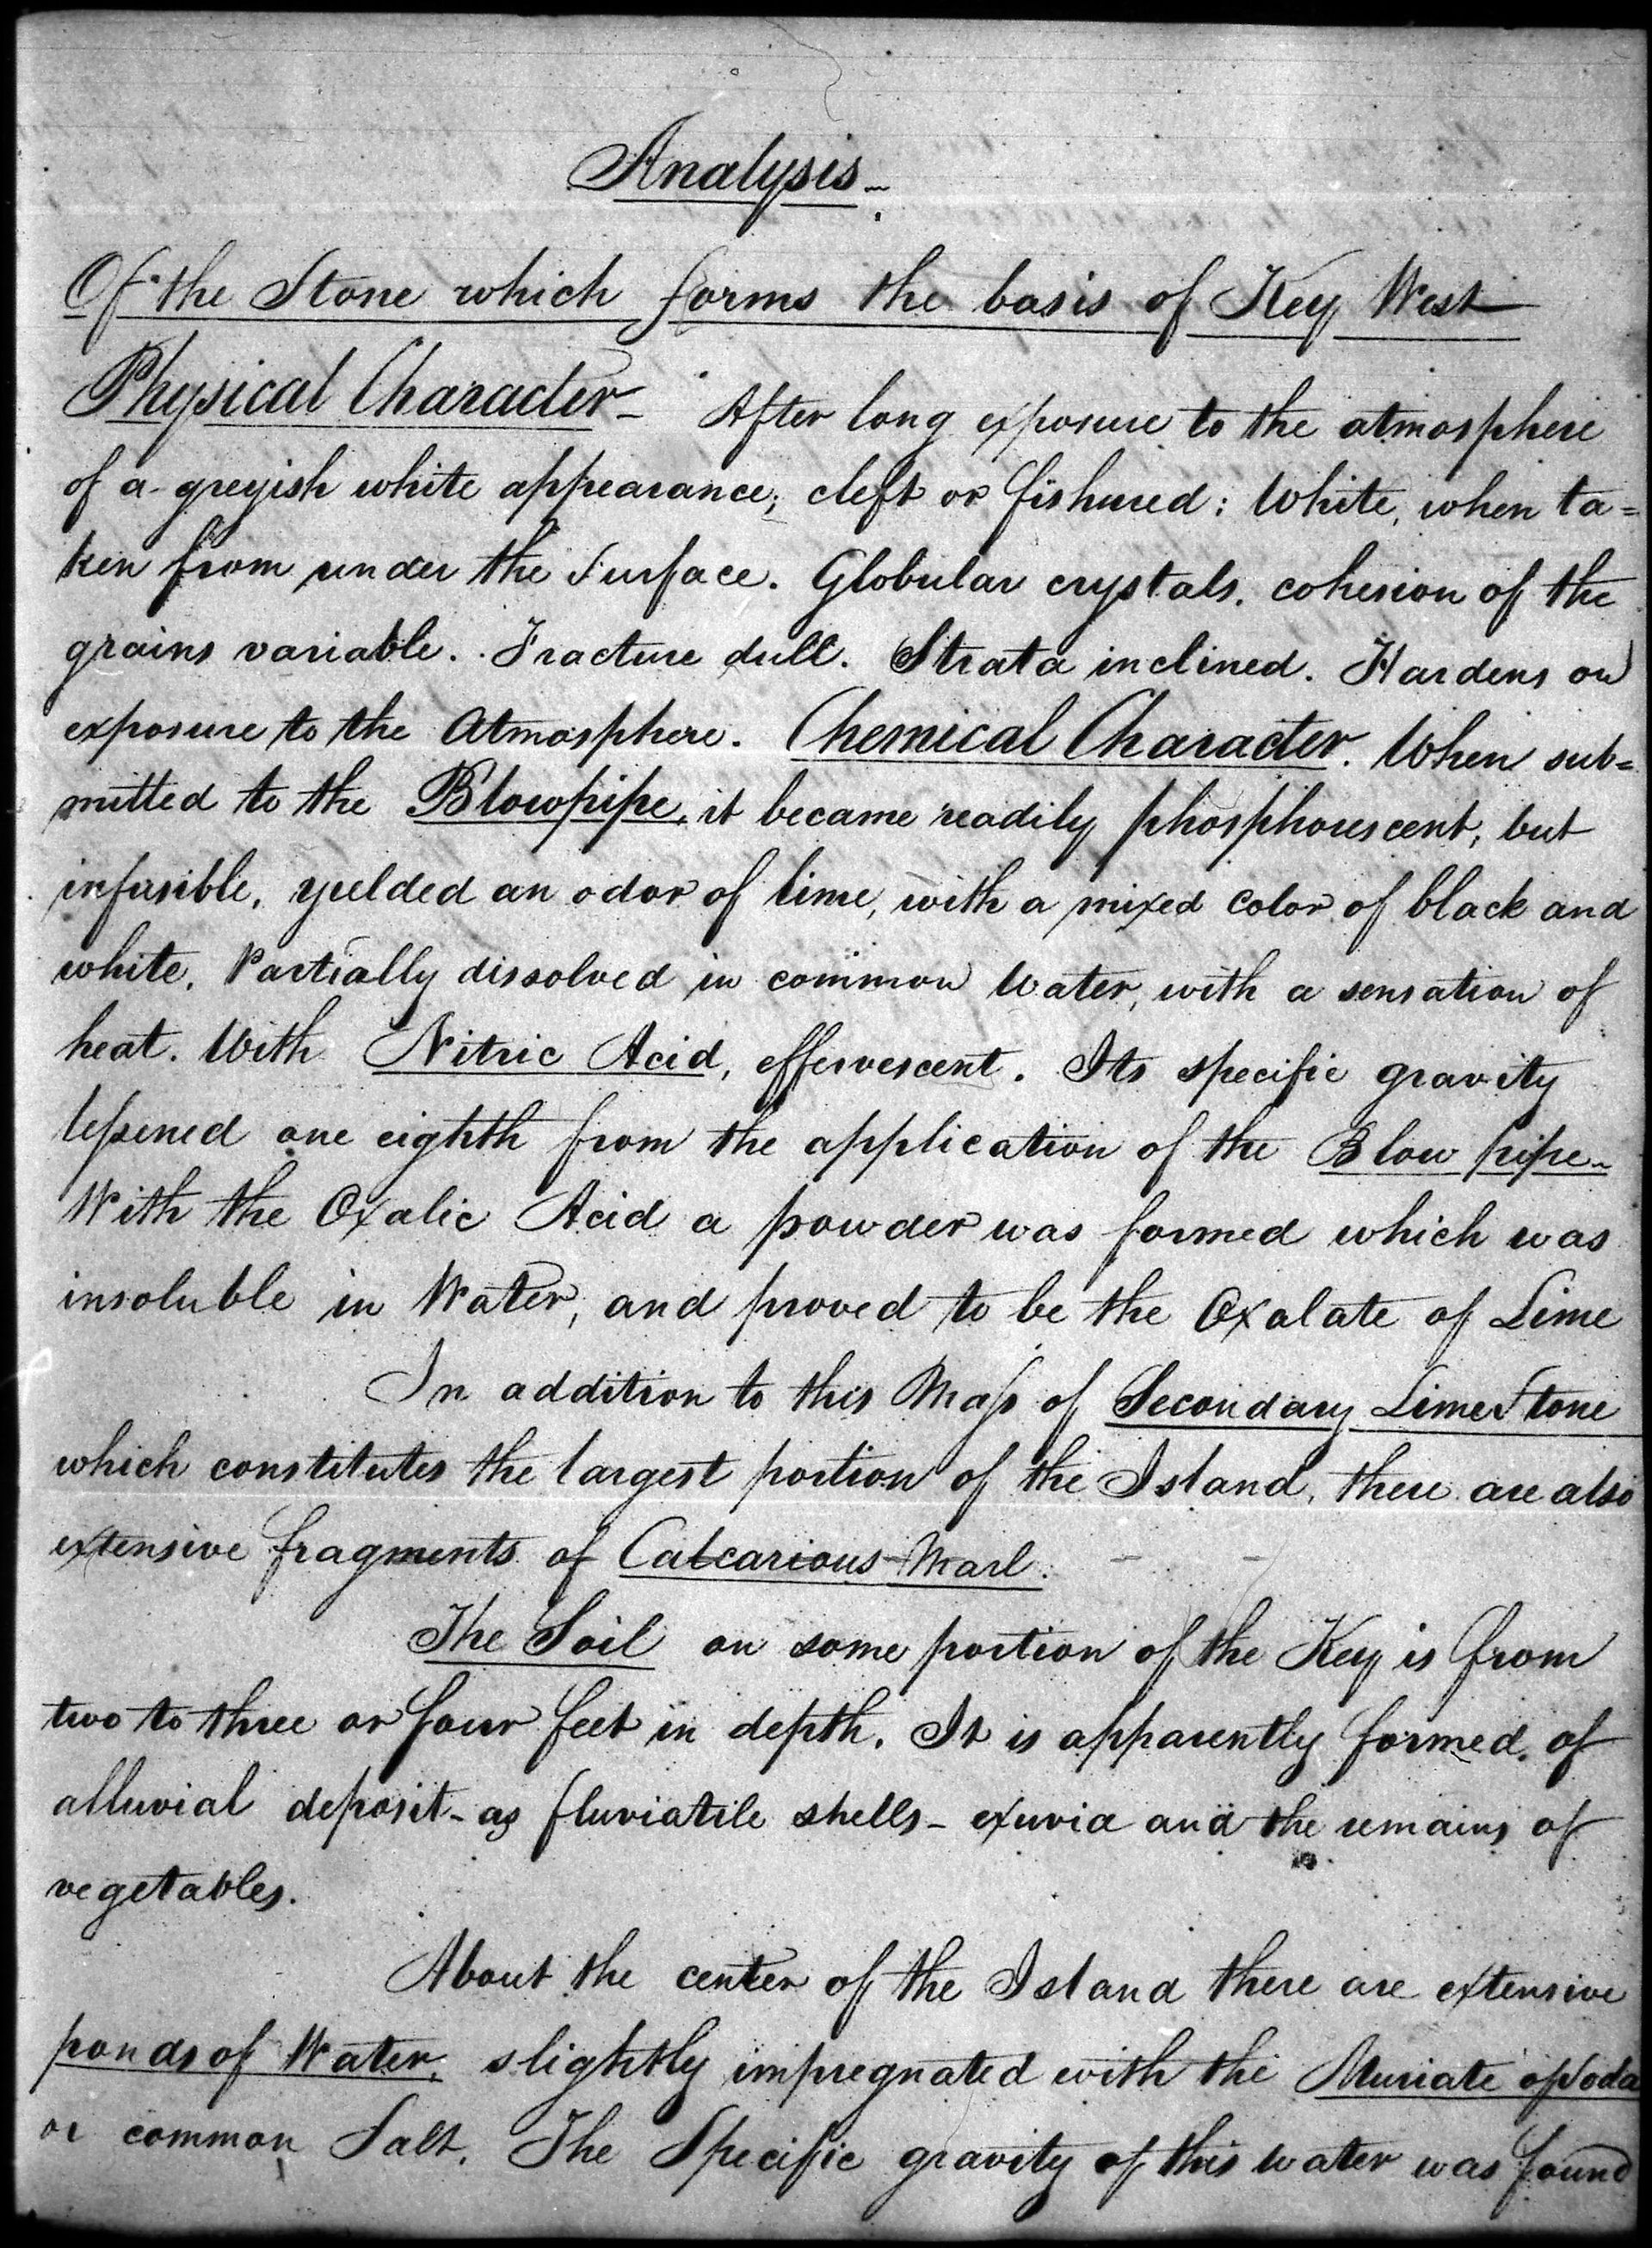 Analysis.
Of the Stone which forms the basis of Key West
Physical Character - After long exposure to the atmosphere
of a greyish white appearance; cleft or fishured: White, when ta=
ken from under the Surface. Globular crystals. cohesion of the
grains variable. Fracture dull. Strata inclined. Hardens on
exposure to the Atmosphere. Chemical Character. When sub=
mitted to the Blowpipe, it became readily phosphorescent; but
infusible, yielded an odor of lime, with a mixed color of black and
white. Partially dissolved in common Water, with a sensation of
heat. With Nitric Acid, effervescent. Its specific gravity
lessened one eighth from the application of the Blow pipe-
With the Oxalic Acid a powder was formed which was
insoluble in Water, and proved to be the Oxalate of Lime
In addition to this Mass of Secondary LimeStone
which constitutes the largest portion of the Island, there are also
extensive fragments of Calcarious Marl.
The Soil on some portion of the Key is from
two to three or four feet in depth. It is apparently formed of
alluvial deposit - as fluviatile shells - exuvia and the remains of
vegetables.
About the center of the Island there are extensive
ponds of Water, slightly impregnated with the Muriate of Soda
or common Salt. The Specific gravity of this water was found